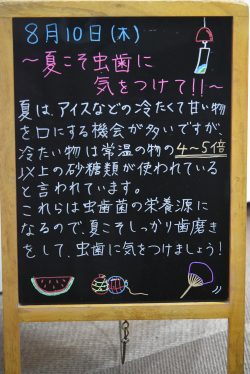 8月10日(木)
～夏こそ虫歯に
気をつけて!!～
夏は、アイスなどの冷たくて甘い物
を口にする機会が多いですが、
冷たい物は常温の物の4～5倍
以上の砂糖類が使われている
と言われています。
これらは虫歯菌の栄養源に
なるので、夏こそしっかり歯磨き
をして、虫歯に気をつけましょう!